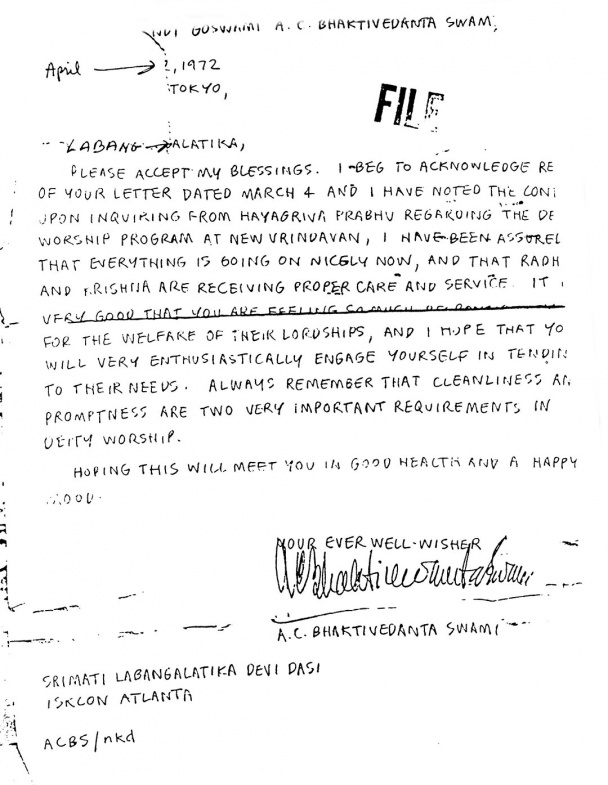 GOSWAMI A. C. BHAKTIVEDANTA SWAMI
April → 2, 1972
TOKYO,
FILE
LABANG → ALATIKA,
PLEASE ACCEPT MY BLESSINGS. I BEG TO ACKNOWLEDGE RE
OF YOUR LETTER DATED MARCH 4 AND I HAVE NOTED THE CON
UPON INQUIRING FROM HAYAGRIVA PRABHU REGARDING THE DE
WORSHIP PROGRAM AT NEW VRINDAVAN, I HAVE BEEN ASSURE
THAT EVERYTHING IS GOING ON NICELY NOW, AND THAT RADH
AND KRISHNA ARE RECEIVING PROPER CARE AND SERVICE. IT
VERY GOOD THAT YOU ARE FEELING SO MUCH
FOR THE WELFARE OF THEIR LORDSHIPS, AND I HOPE THAT YO
WILL VERY ENTHUSIASTICALLY ENGAGE YOURSELF IN TENDIN
TO THEIR NEEDS. ALWAYS REMEMBER THAT CLEANLINESS AN
PROMPTNESS ARE TWO VERY IMPORTANT REQUIREMENTS IN
DEITY WORSHIP.
HOPING THIS WILL MEET YOU IN GOOD HEALTH AND A HAPPY
MOOD.
YOUR EVER WELL-WISHER
A C Bhaktivedanta Swami
A.C. BHAKTIVEDANTA SWAMI
SRIMATI LABANGALATIKA DEVI DASI
ISKCON ATLANTA
ACBS/nkd